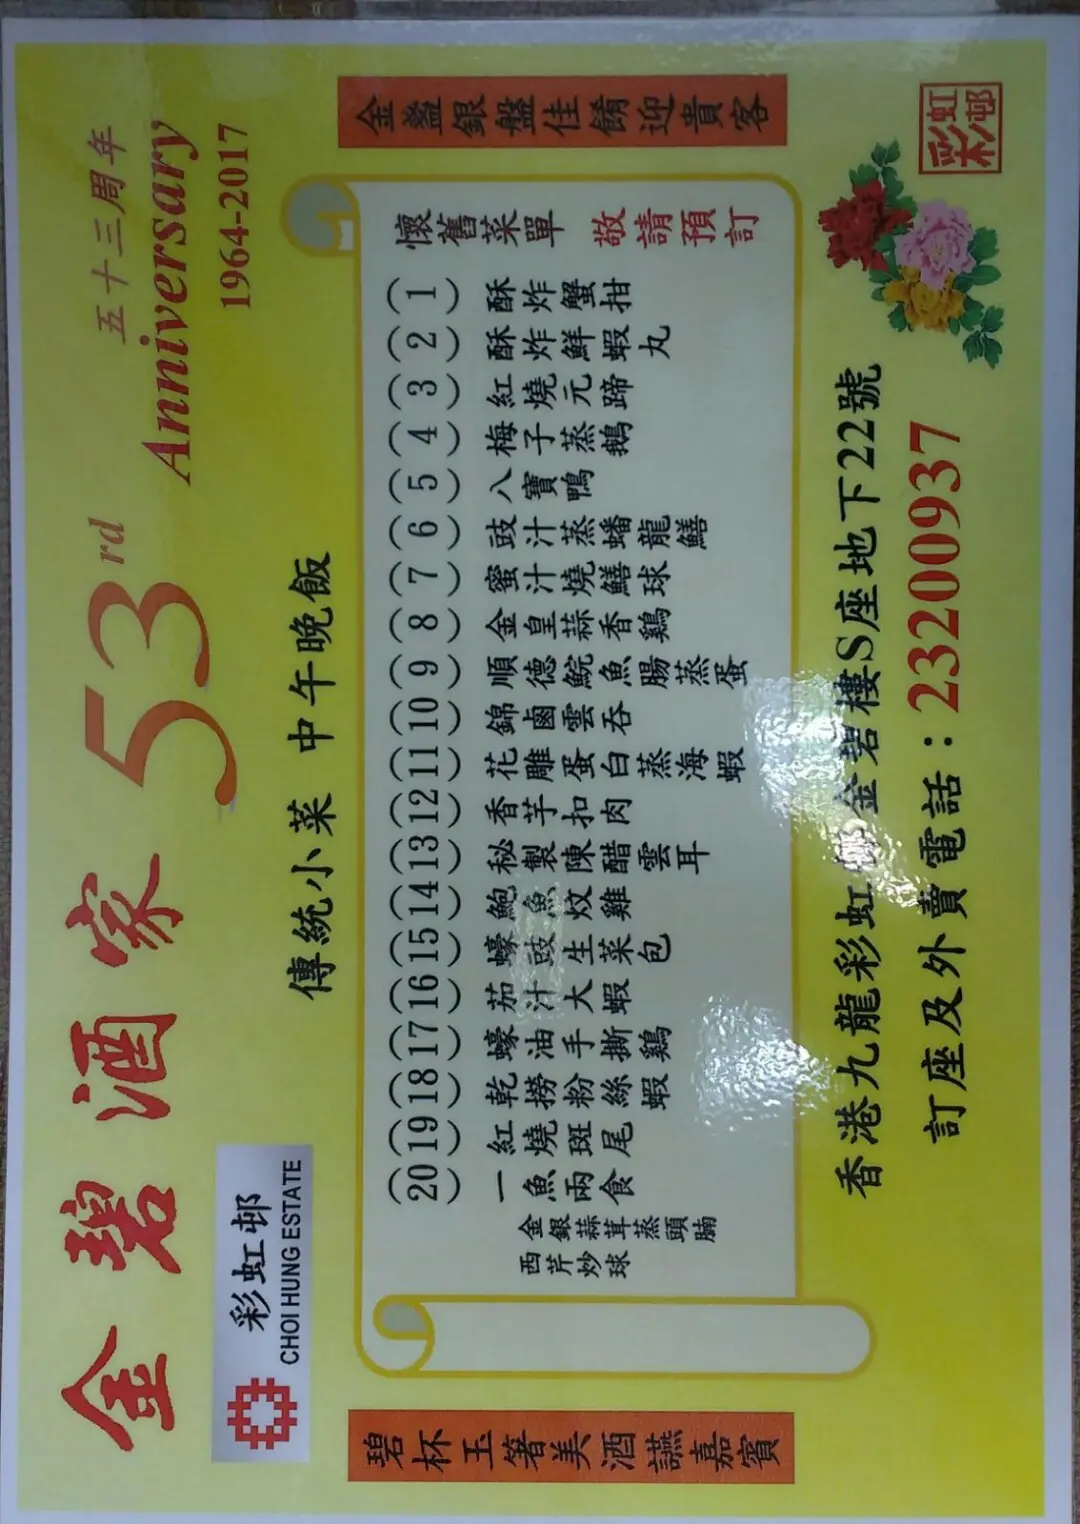 金碧酒家 53rd Anniversary
五十三周年
1964-2017
彩虹邨
CHOI HUNG ESTATE
傳統小菜 中午晚飯
金盞銀盤佳餚迎貴客
碧杯玉箸美酒讌嘉賓
懷舊菜單
敬請預訂
(1) 酥炸蟹拑
(2) 酥炸鮮蝦丸
(3) 紅燒元蹄
(4) 梅子蒸鵝
(5) 八寶鴨
(6) 豉汁蒸蟠龍鱔
(7) 蜜汁燒鱔球
(8) 金皇蒜香鷄
(9) 順德鯇魚腸蒸蛋
(10) 錦鹵雲吞
(11) 花雕蛋白蒸海蝦
(12) 香芋扣肉
(13) 秘製陳醋雲耳
(14) 鮑魚炆雞
(15) 蠔豉生菜包
(16) 茄汁大蝦
(17) 蠔油手撕鷄
(18) 乾撈粉絲蝦
(19) 紅燒斑尾
(20) 一魚兩食
金銀蒜茸蒸頭腩
西芹炒球
香港九龍彩虹邨金碧樓S座地下22號
訂座及外賣電話：23200937
彩虹邨